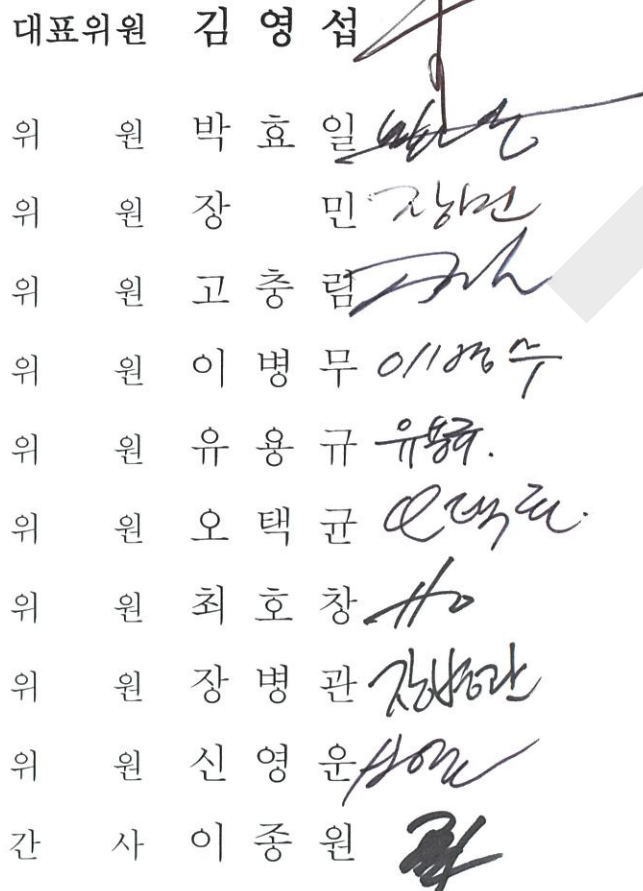 대표위원 김 영 섭
위 원 박 효 일
위 원 장 민 장민
위 원 고 충 림
위 원 이 병 무 이병무
위 원 유 용 규 유용규.
위 원 오 택 균 오택균.
위 원 최 호 창
위 원 장 병 관 장병관
위 원 신 영 운
간 사 이 종 원